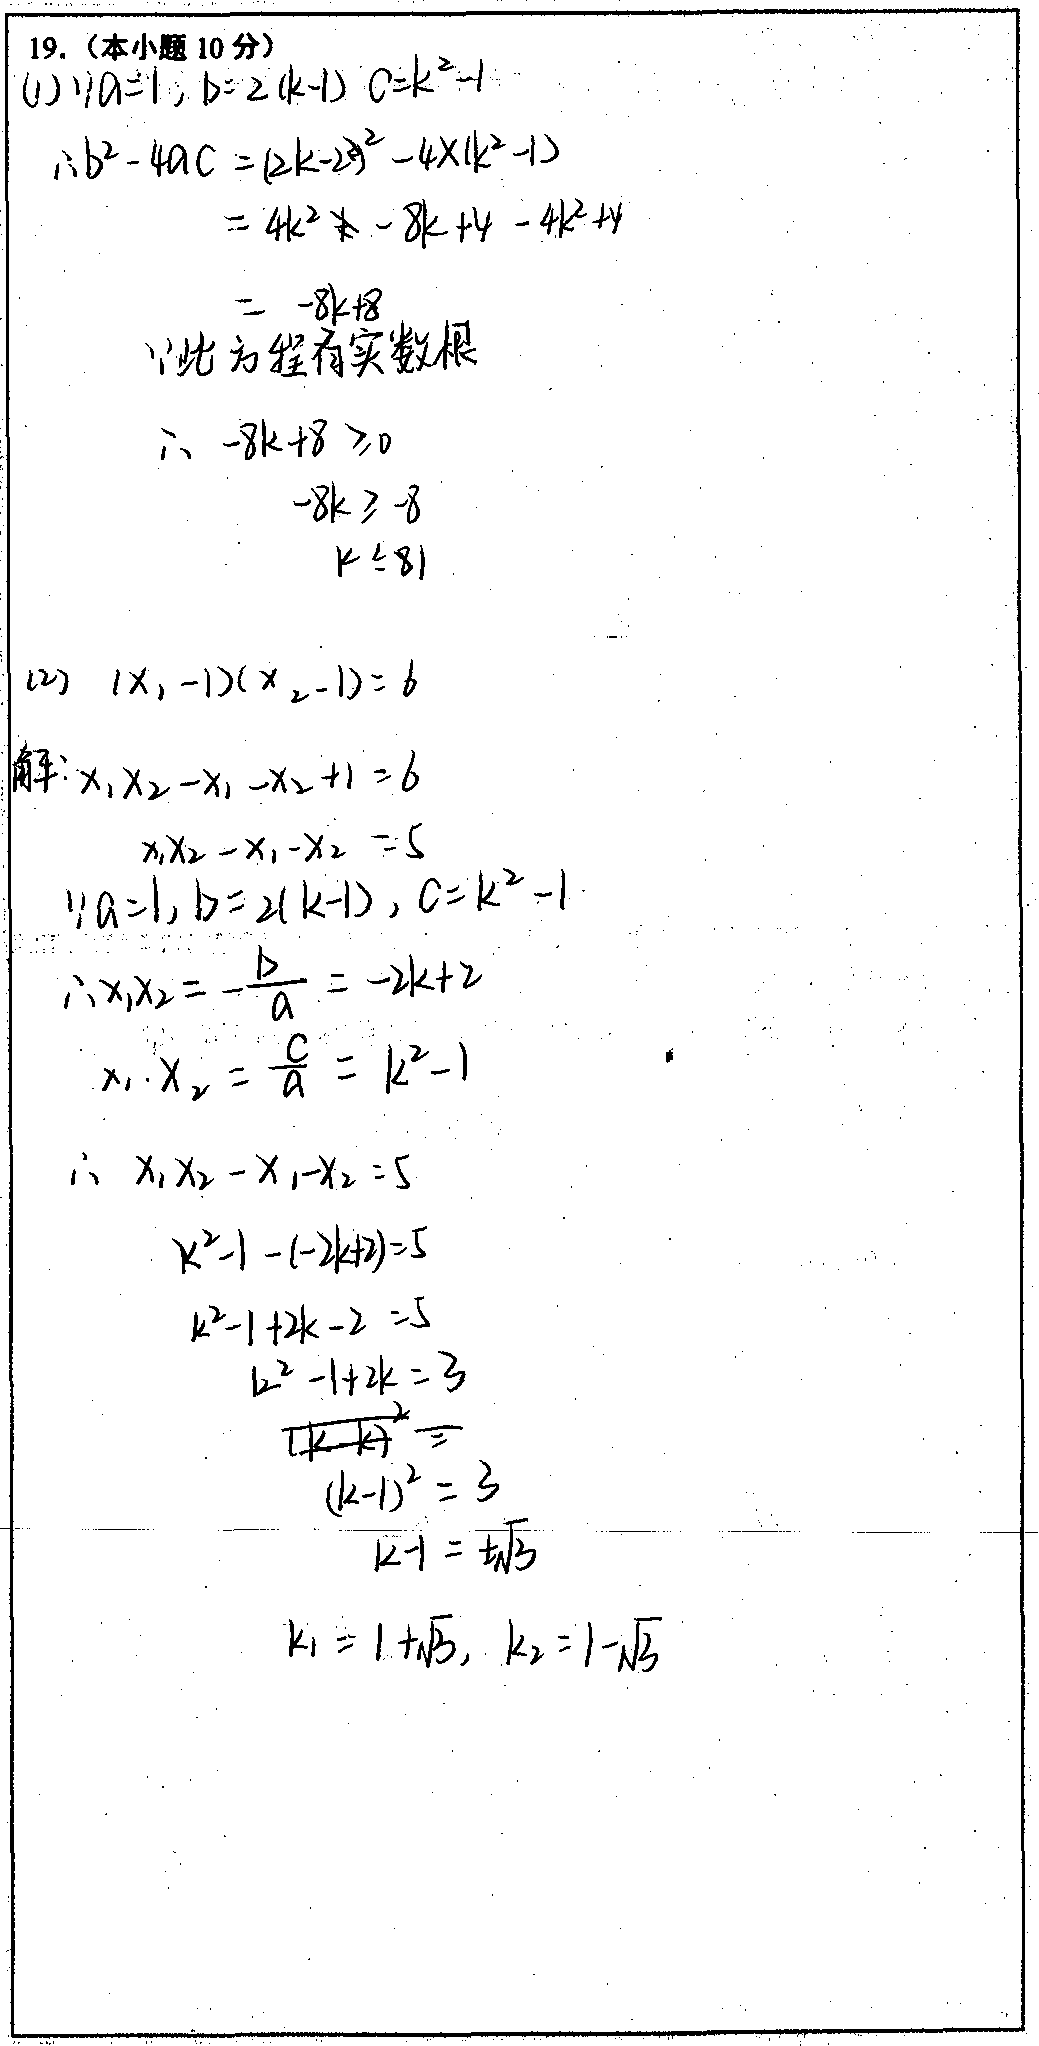 19.（本小题 10 分）
(1) ∵a=1, b=2(k-1) c=k²-1
∴b²-4ac=(2k-2)²-4×(k²-1)
=4k²-8k+4-4k²+4
= -8k+8
∵此方程有实数根
∴ -8k+8≥0
-8k≥-8
k≤1
(2) (x₁-1)(x₂-1)=6
解: x₁x₂-x₁-x₂+1=6
x₁x₂-x₁-x₂=5
∵a=1, b=2(k-1), c=k²-1
∴x₁x₂=-b/a=-2k+2
x₁·x₂=c/a=k²-1
∴ x₁x₂-x₁-x₂=5
k²-1-(-2k+2)=5
k²-1+2k-2=5
k²-1+2k=3
(k-1)²=3
k-1=±√3
k₁=1+√3, k₂=1-√3